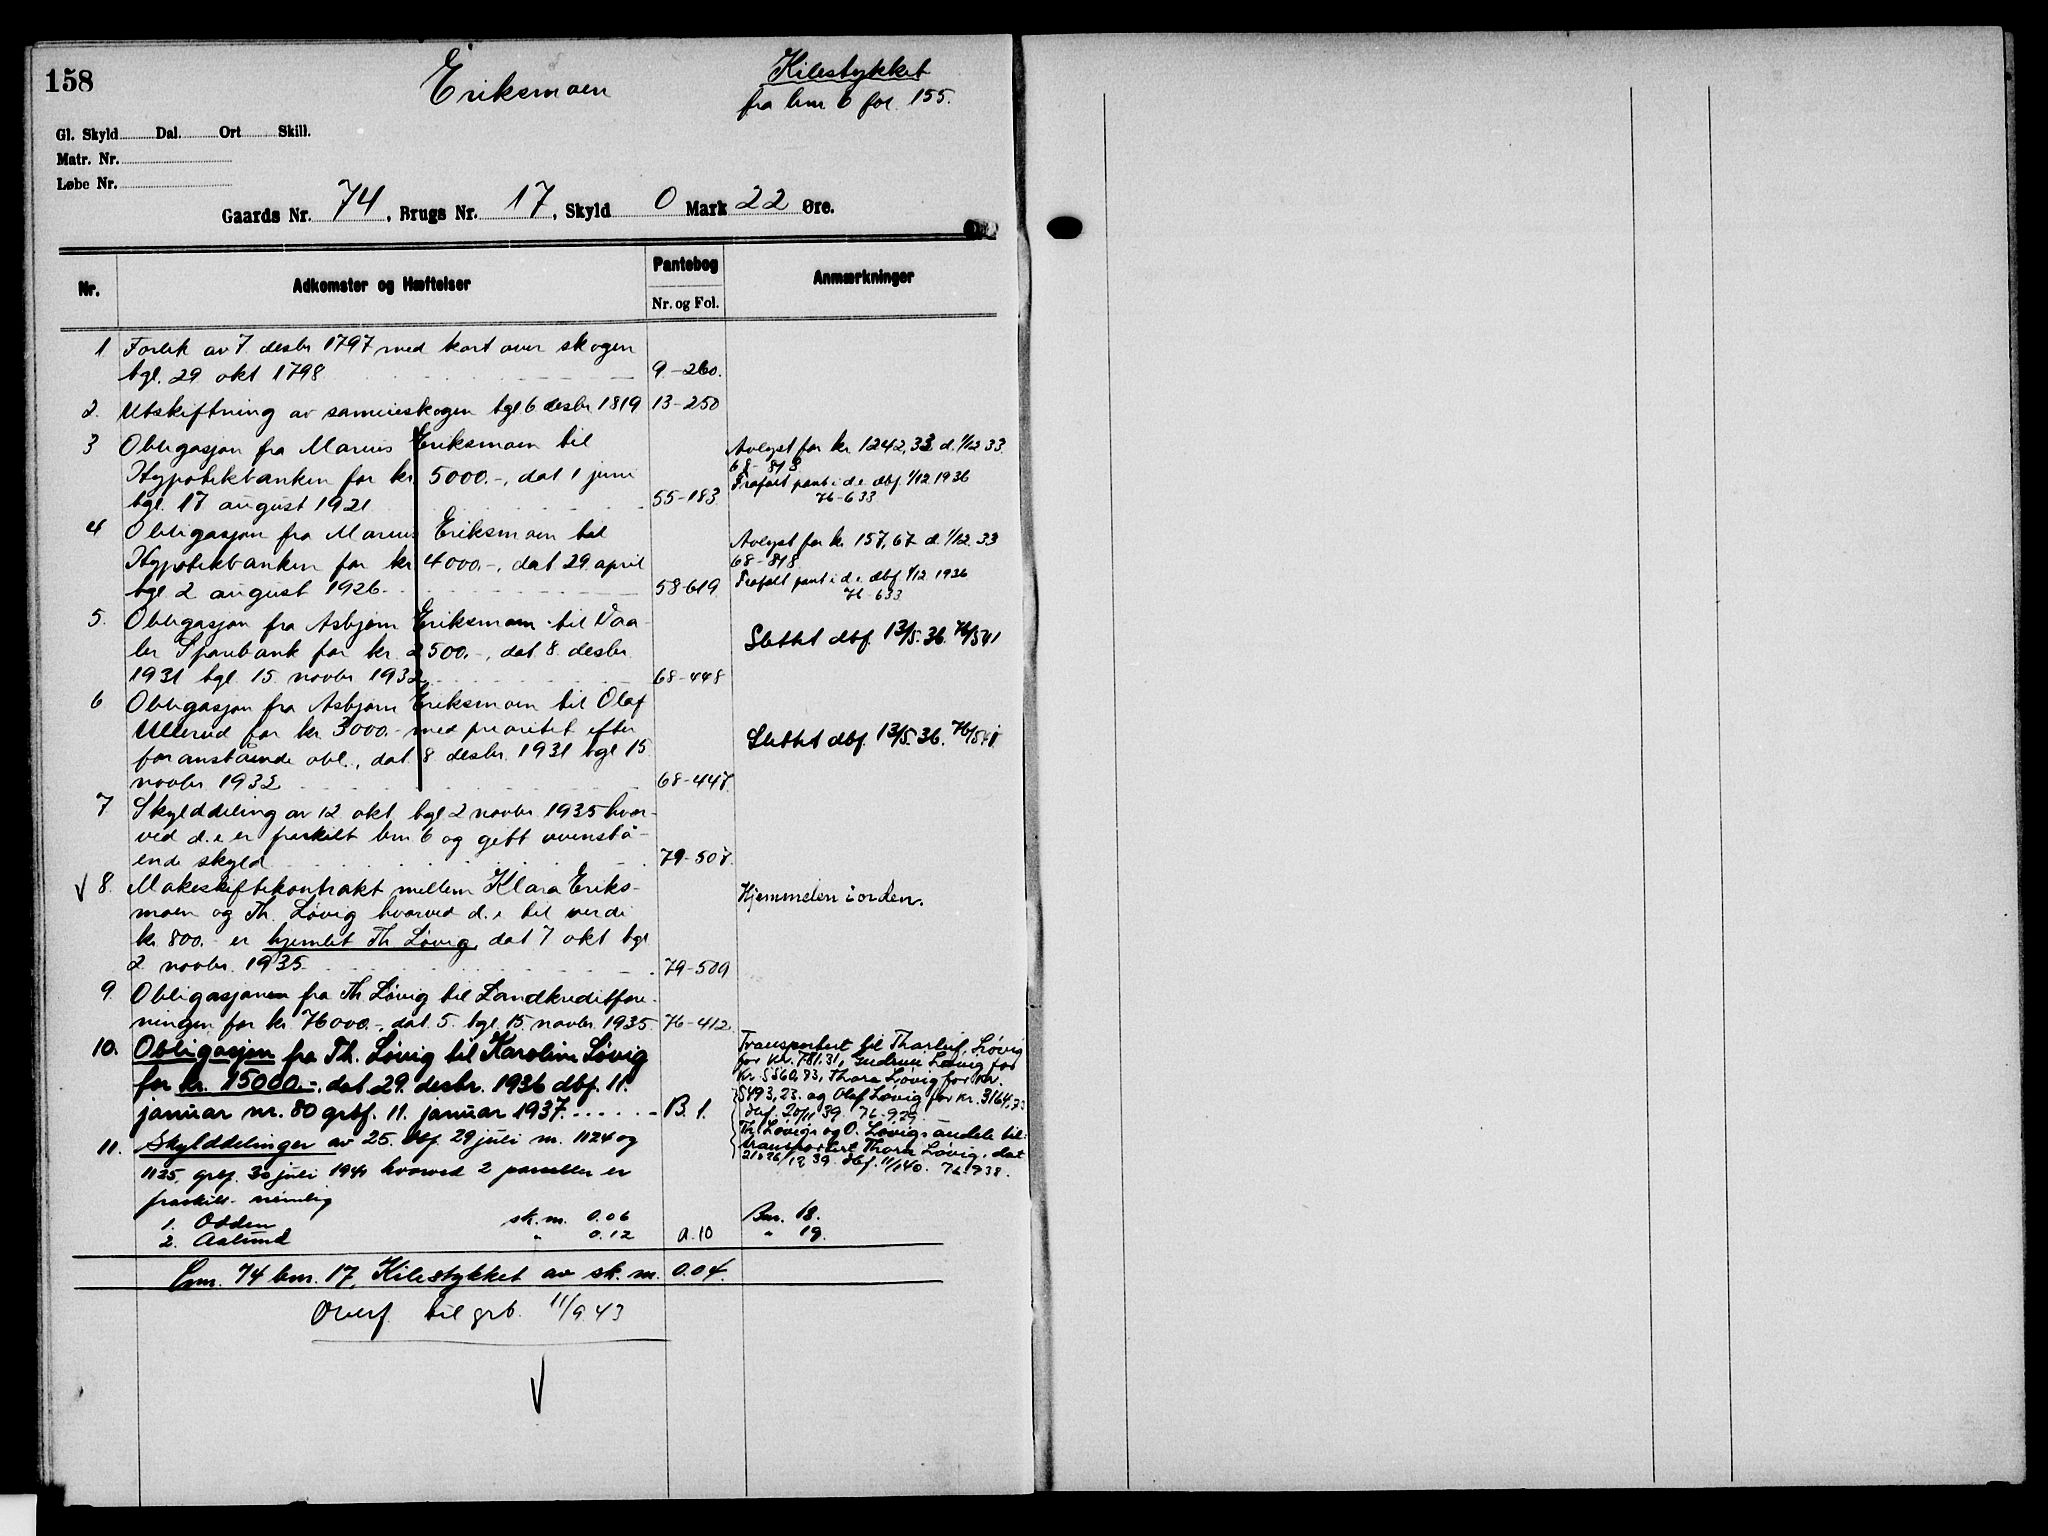 158
Eriksmoen
Kilestykket
fra bnr 6 fol. 155.
Gl. Skyld Dal. Ort Skill.
Matr. Nr.
Løbe Nr.
Gaards Nr. 74, Brugs Nr. 17, Skyld 0 Mark 22 Øre.
Nr. Adkomster og Hæftelser Pantebog Nr. og Fol. Anmærkninger
1 Forlik av 7 desbr 1797 med kart over skogen
tgl. 29 okt 1798 9-260.
2. Utskiftning av sameieskogen tgl 6 desbr 1819 13-250
3 Obligasjon fra Marius Eriksmoen til
Hypotekbanken for kr 5000.-, dat 1 juni
tgl. 17 august 1921 55-183
Avlyst for kr 1242,33 d. 1/12 33
68-878
Frafalt pant i d.e. dbf. 1/12 1936
76-633
4 Obligasjon fra Marius Eriksmoen til
Hypotekbanken for kr 4000.-, dat 29 april
tgl 2 august 1926. 58-619
Avlyst for kr 157,67 d. 1/12. 33
68-878
Frafalt pant i d.e. dbf 1/12 1936
76-633
5. Obligasjon fra Asbjørn Eriksmoen til Vaa-
ler Sparebank for kr. 2500.-, dat. 8. desbr
1931 tgl. 15 novbr 1932 68-448
Slettet dbf. 13/5. 36. 76/541
6 Obligasjon fra Asbjørn Eriksmoen til Olaf
Ullerud for kr 3000.- med prioritet efter
foranstående obl., dat. 8 desbr. 1931 tgl 15
novbr 1932 68-447.
Slettet dbf. 13/5. 36. 76/541
7 Skylddeling av 12 okt. tgl 2 novbr 1935 hvor-
ved d.e. er fraskilt bnr 6 og gitt ovenstå-
ende skyld 79-507.
8. Makeskiftekontrakt mellem Klara Eriks-
moen og Th. Løvig hvorved d.e. til verdi
kr 800.- er hjemlet Th Løvig, dat 7 okt tgl
2 novbr. 1935 79-509
Hjemmelen i orden.
9. Obligasjonen fra Th Løvig til Landkreditfore-
ningen for kr. 76000.-, dat. 5. tgl. 15. novbr. 1935. 76-412
10. Obligasjon fra Th. Løvig til Karoline Løvig
for kr. 15000.-. dat 29. desbr. 1936 dbf. 11.
januar nr. 80 grbf. 11. januar 1937. B. 1.
Transportert til Thorleif Løvig
for kr. 781.31, Gudrun Løvig for
kr. 5560,73, Thora Løvig for kr.
5493,23. og Olaf Løvig for kr. 3164,73
dbf. 20/11 39. 76-929.
Th. Løvigs og O. Løvigs andele til-
transportert Thora Løvig, dat
21 & 26/12 39. dbf. 11/1 40. 76-938.
11. Skylddelinger av 25. dbf. 29 juli nr. 1124 og
1125, grbf. 30 juli 1941 hvorved 2 parseller er
fraskilt nemlig
1. Odden sk. m. 0.06 Bnr. 18.
2. Aalund " 0.12 a. 10 " 19.
Gnr. 74 bnr. 17, Kilestykket av sk. m. 0.04.
Overf. til grb. 11/9 43